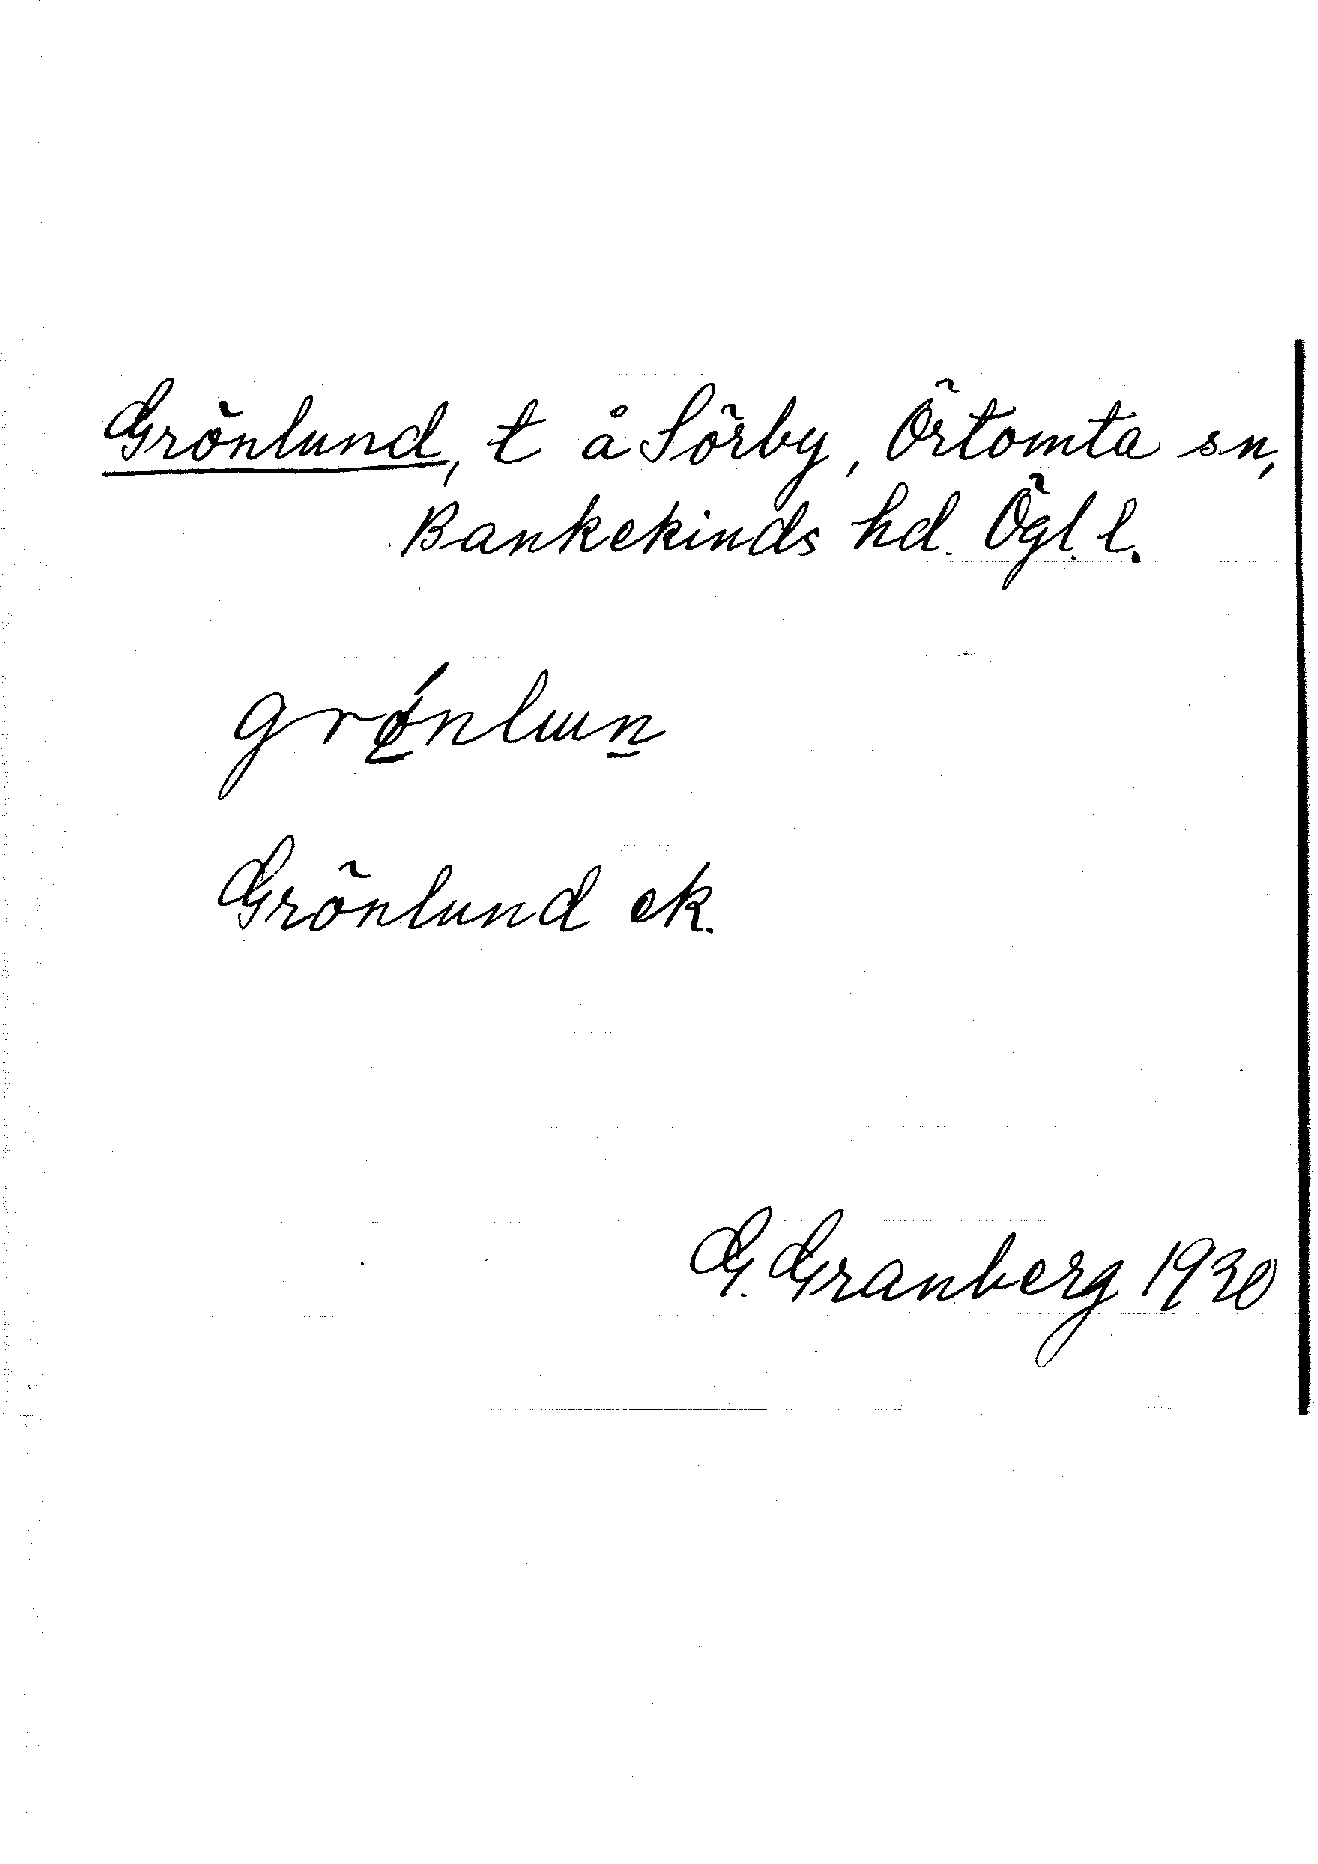 Grönlund, t å Sörby, Örtomta sn,
Bankekinds hd. Ögl. l.
grǿnlɯn
Grönlund ek.
G. Granberg 1930